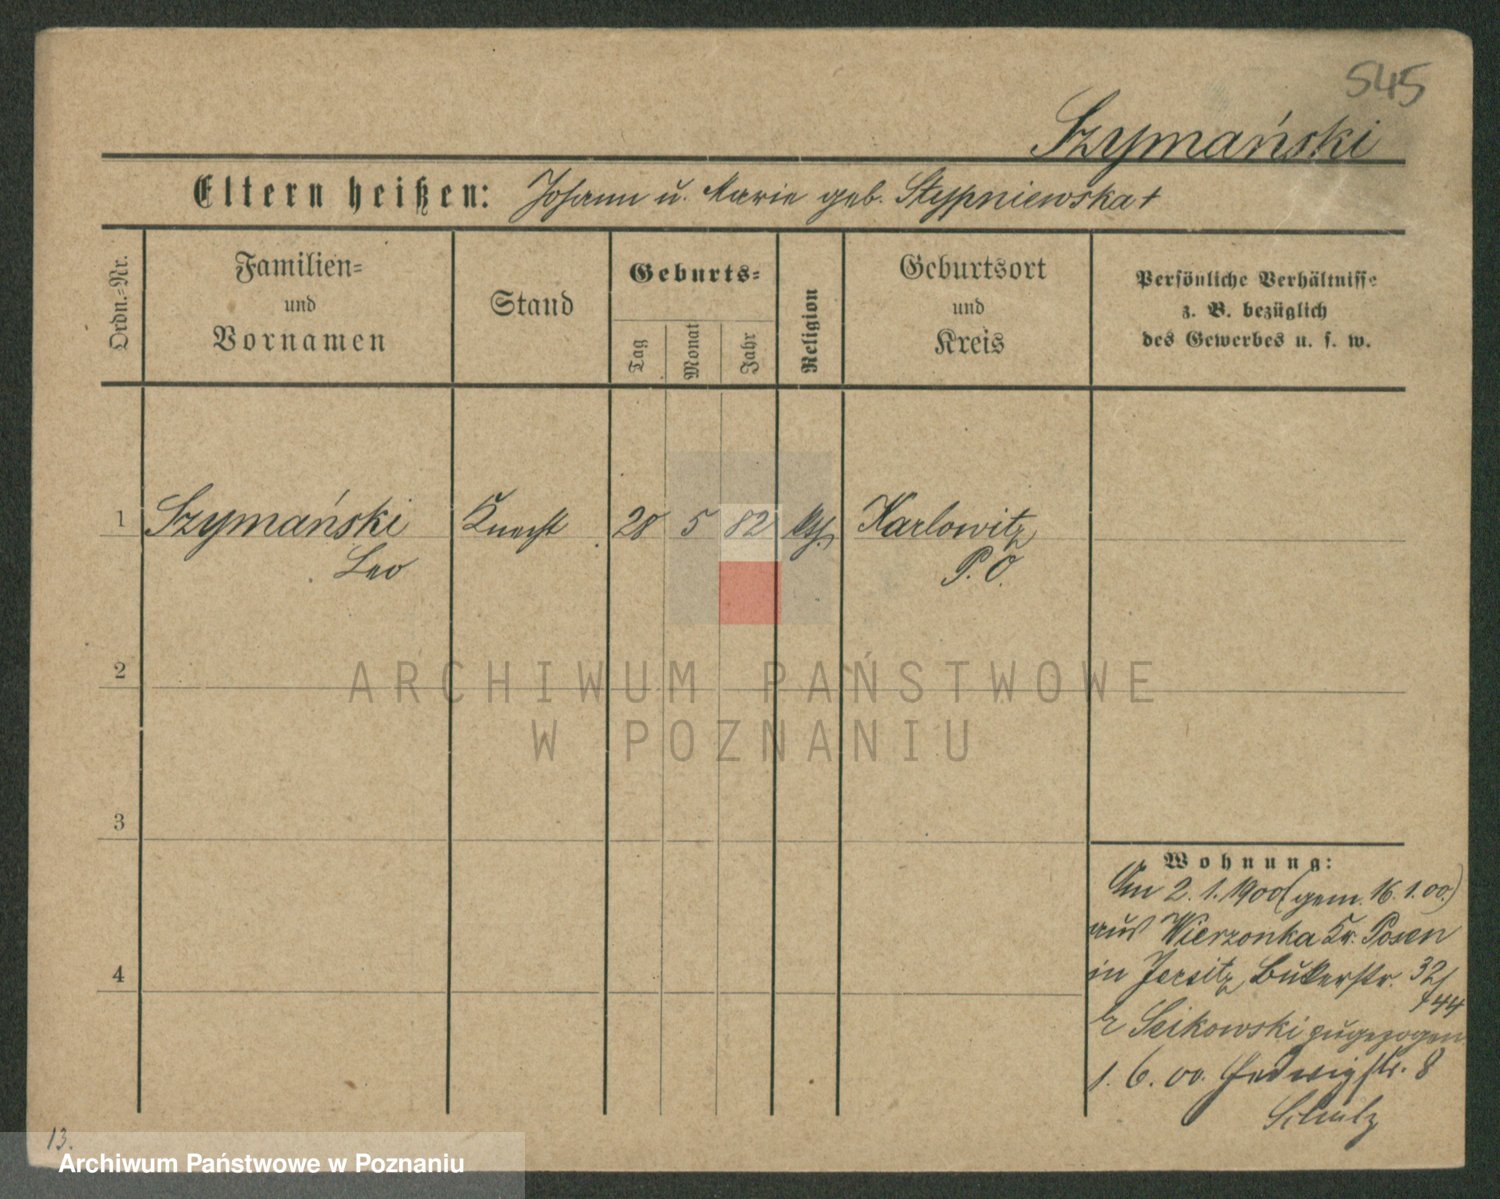 545
Szymański
Eltern heißen: Johann u. Marie geb. Stypniewska +
Ordn.-Nr.
Familien- und Vornamen
Stand
Geburts-
Tag
Monat
Jahr
Religion
Geburtsort und Kreis
Persönliche Verhältnisse
z. B. bezüglich
des Gewerbes u. s. w.
1 Szymański Knecht 28 5 82 kth. Karlowitz
Leo P. O.
2
3
4
Wohnung:
Am 2. 1. 1900 (gem. 16. 1. 00.)
aus Wierzonka Kr. Posen
in Jersitz, Bukerstr. 32/
44
Seikowski zugezogen
1. 6. 00. Hedwigstr. 8
Schulz
13.
ARCHIWUM PAŃSTWOWE
W POZNANIU
Archiwum Państwowe w Poznaniu